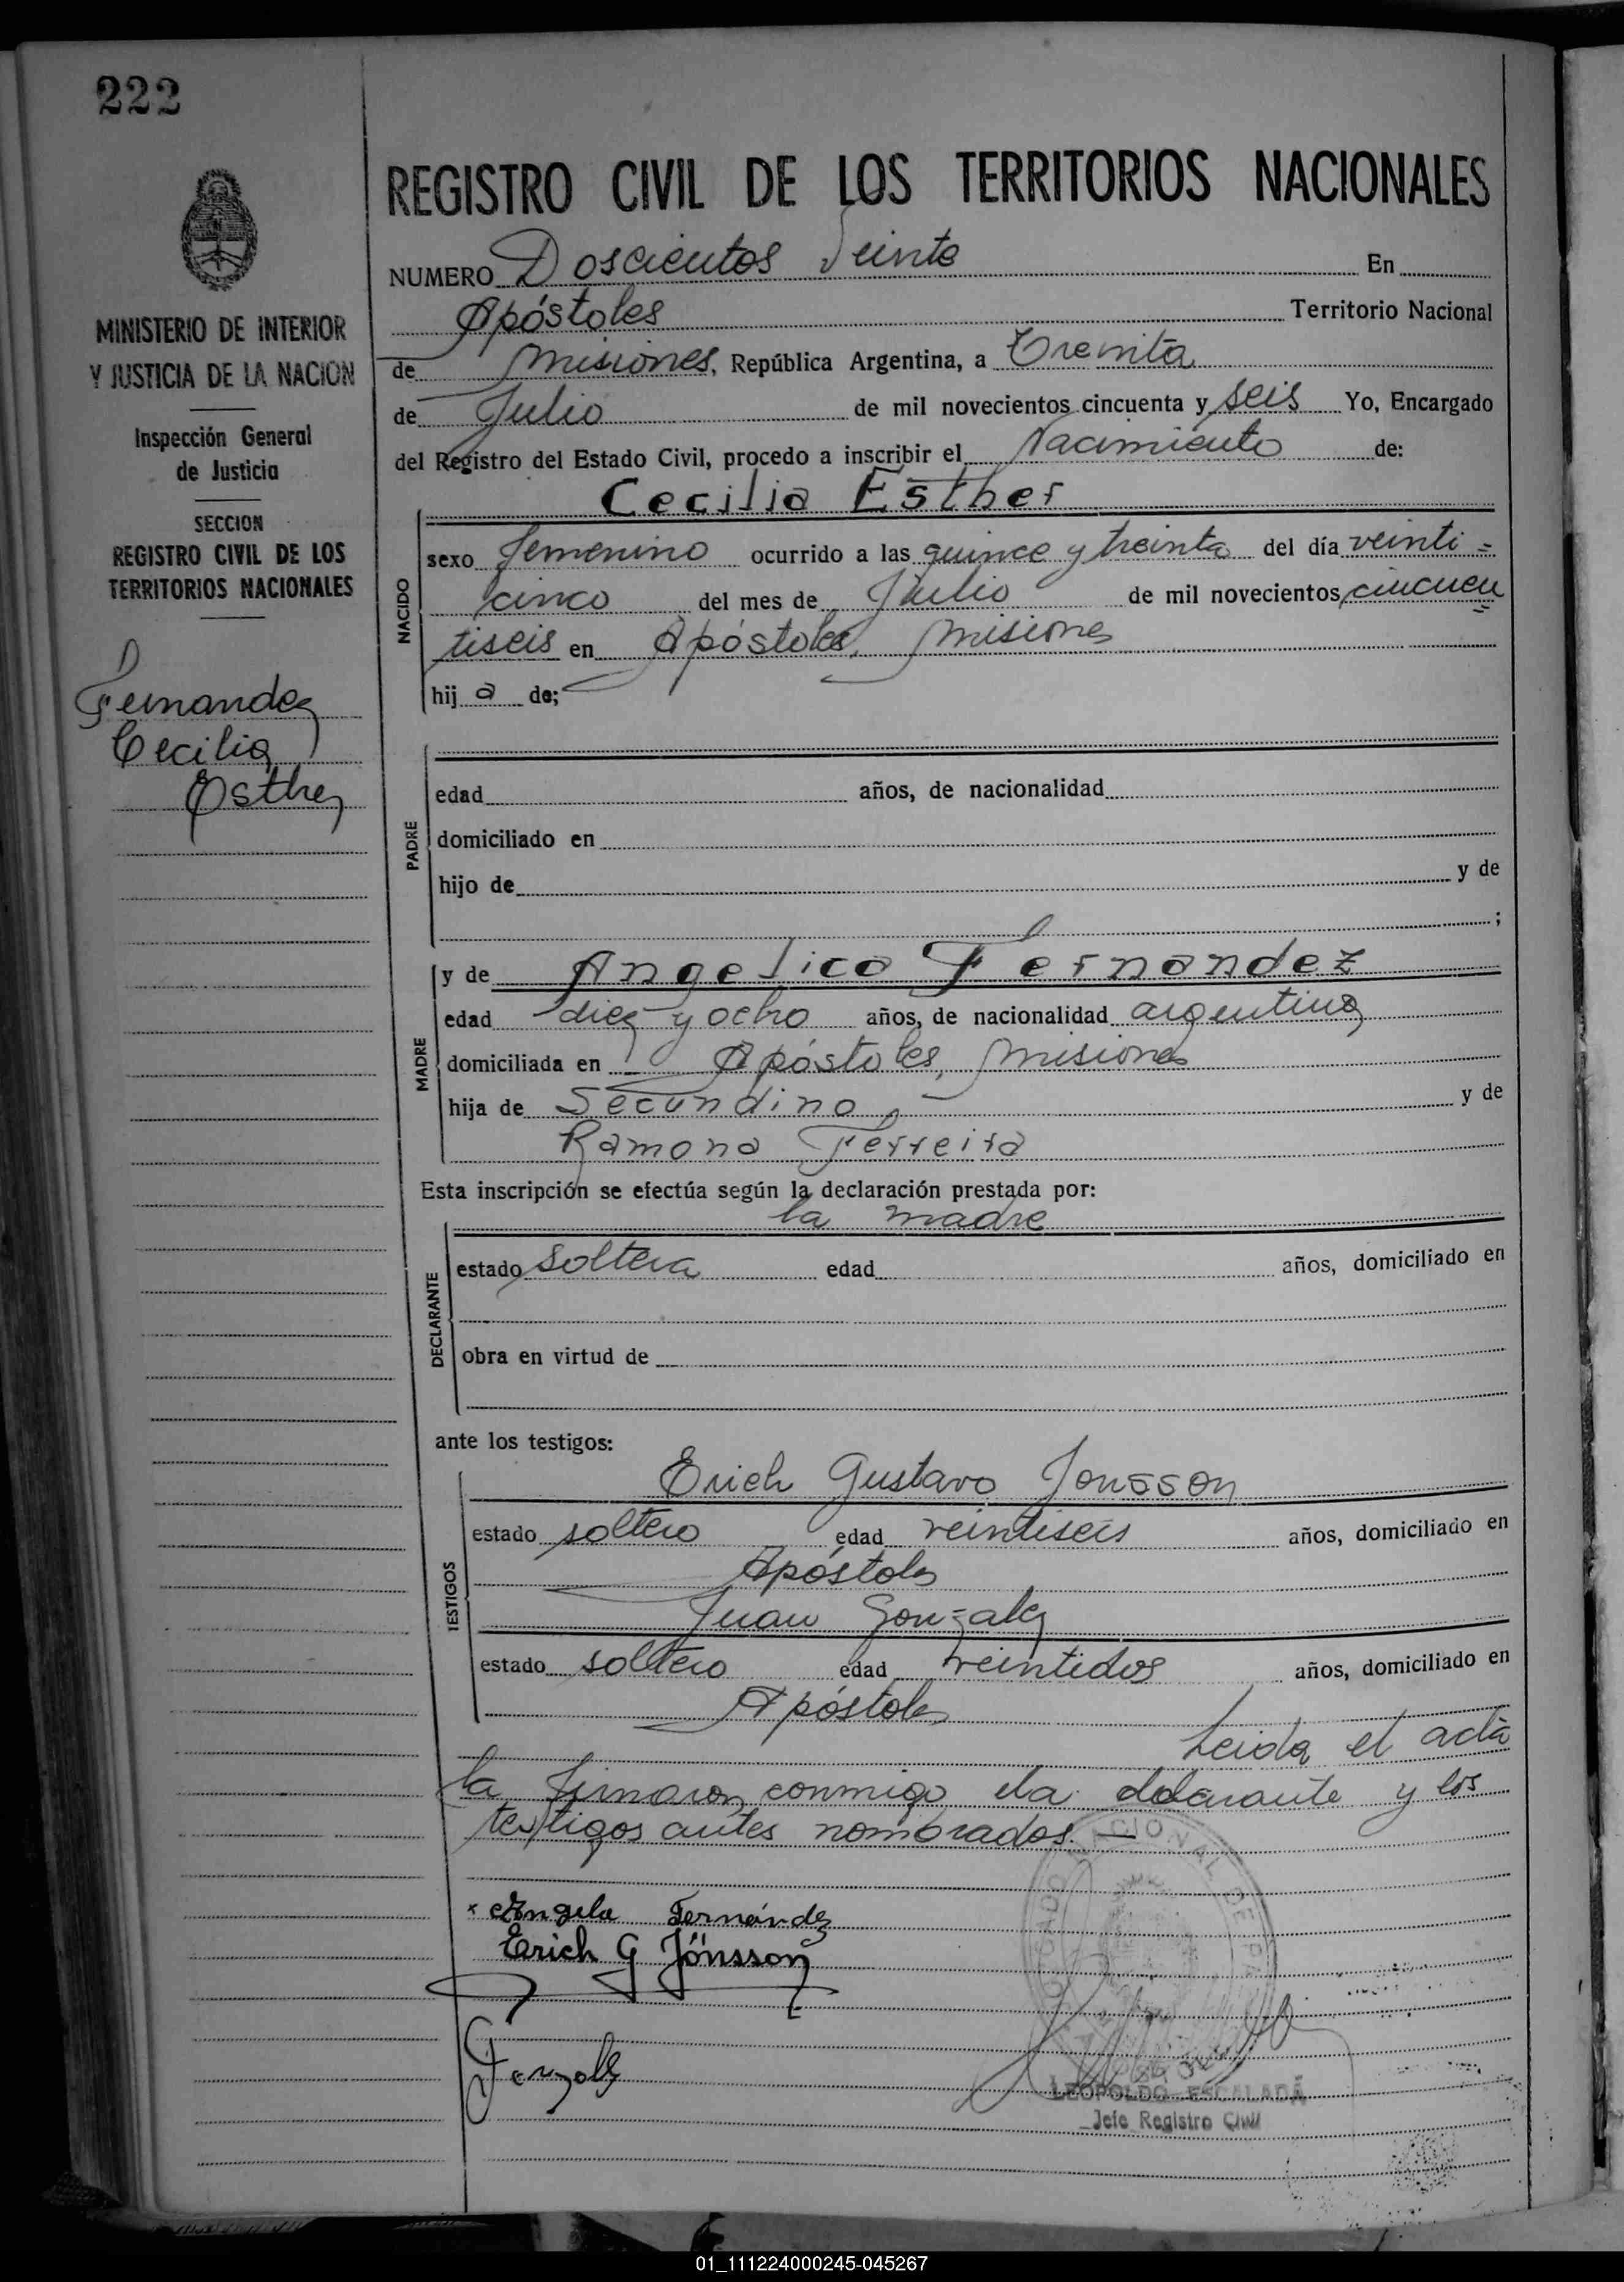 222
REGISTRO CIVIL DE LOS TERRITORIOS NACIONALES
MINISTERIO DE INTERIOR
Y JUSTICIA DE LA NACION
Inspección General
de Justicia
SECCION
REGISTRO CIVIL DE LOS
TERRITORIOS NACIONALES
Fernandez
Cecilia
Esther
NUMERO Doscientos Veinte En
Apóstoles Territorio Nacional
de Misiones, República Argentina, a Treinta
de Julio de mil novecientos cincuenta y seis Yo, Encargado
del Registro del Estado Civil, procedo a inscribir el Nacimiento de:
Cecilia Esther
NACIDO
sexo femenino ocurrido a las quince y treinta del día veinti=
cinco del mes de Julio de mil novecientos cincuen=
tiseis en Apóstoles, Misiones
hij a de;
PADRE
edad años, de nacionalidad
domiciliado en
hijo de y de
;
MADRE
y de Angelica Fernandez
edad diez y ocho años, de nacionalidad argentina
domiciliada en Apóstoles, Misiones
hija de Secundino, - y de
Ramona Ferreira
Esta inscripción se efectúa según la declaración prestada por:
la madre
DECLARANTE
estado soltera edad años, domiciliado en
obra en virtud de
ante los testigos:
TESTIGOS
Erich Gustavo Jonsson
estado soltero edad veintiseis años, domiciliado en
Apóstoles
Juan Gonzalez
estado soltero edad veintidos años, domiciliado en
Apóstoles
Leida el acta
la firmaron conmigo la declarante y los
testigos antes nombrados. —
x Angela Fernández
Erich G Jönsson
Gonzalez
LEOPOLDO ESCALADA
Jefe Registro Civil
01_111224000245-045267